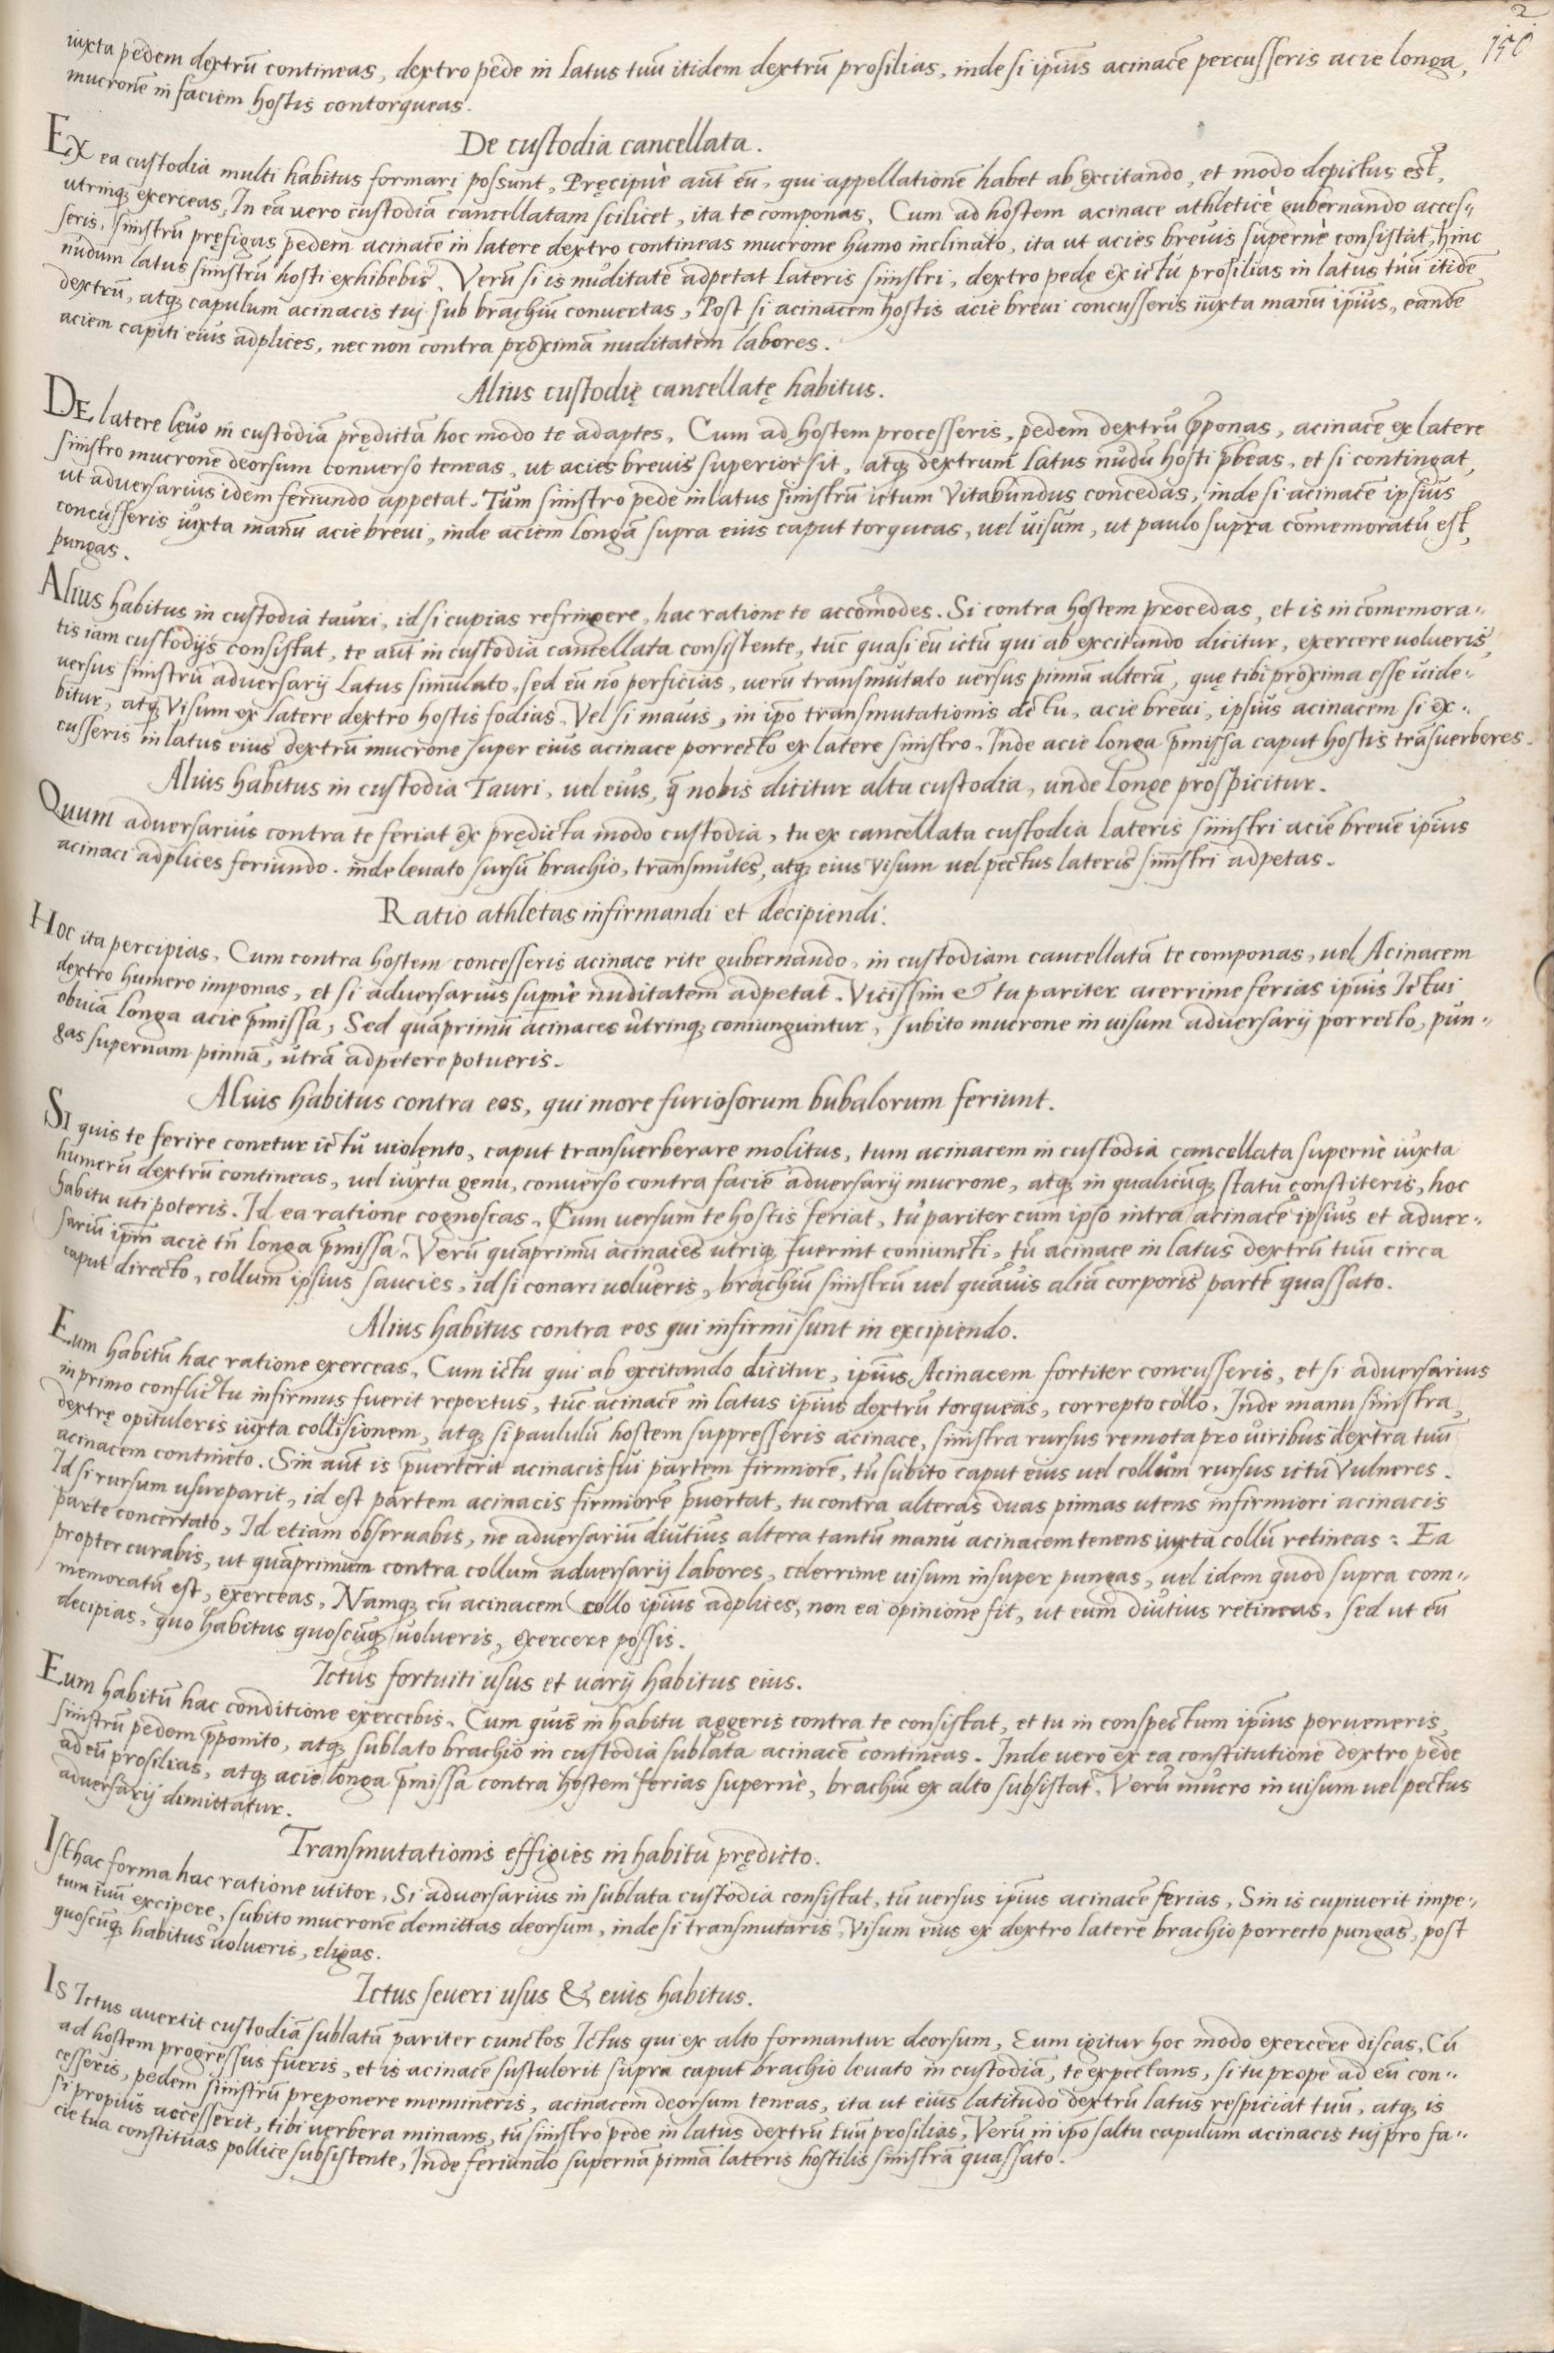 2
150
iuxta pedem dextrū contineas, dextro pede in latus tuū itidem dextrū prosilias, inde si ipsius acinacē percusseris acie longa,
mucronē in faciem hostis contorqueas.
De custodia cancellata.
Ex ea custodia multi habitus formari possunt, Pręcipuè aūt eū, qui appellationē habet ab excitando, et modo depictus est,
utrinq; exerceas, In eā vero custodiā cancellatam scilicet, ita te componas, Cum ad hostem acinace athleticè gubernando acces=
seris, sinistrū pręfigas pedem acinacē in latere dextro contineas mucrone humo inclinato, ita ut acies brevis supernè consistat, hinc
nudum latus sinistrū hosti exhibebis. Verū si is nuditatē adpetat lateris sinistri, dextro pede ex ictu prosilias in latus tuū itidē
dextrū, atq; capulum acinacis tuj sub brachiū convertas, Post si acinacem hostis acie brevi concusseris iuxta manū ipsius, eandē
aciem capiti eius adplices, nec non contra proximā nuditatem labores.
Alius custodię cancellatę habitus.
DE latere lęvo in custodiā prędictā hoc modo te adaptes, Cum ad hostem processeris, pedem dextrū p̄ponas, acinacē ex latere
sinistro mucrone deorsum converso teneas, ut acies brevis superior sit, atq; dextrum latus nudū hosti p̄beas, et si contingat,
ut adversarius idem feriundo appetat. Tum sinistro pede in latus sinistrū ictum vitabundus concedas, inde si acinacē ipsius
concusseris iuxta manū acie brevi, inde aciem longā supra eius caput torqueas, vel visum, ut paulo supra comemoratū est,
pungas.
Alius habitus in custodia tauri, id si cupias refringere, hac ratione te accōmodes. Si contra hostem procedas, et is in comemora=
tis iam custodijs consistat, te aūt in custodia cancellata consistente, tūc quasi eū ictū qui ab excitando dicitur, exercere volueris,
versus sinistrū adversarij latus simulato, sed eū nō perficias, verū transmutato versus pinnā alterā, quę tibi proxima esse vide=
bitur, atq; visum ex latere dextro hostis fodias. Vel si mavis, in ip̄o transmutationis actu, acie brevi, ipsius acinacem si ex=
cusseris in latus eius dextrū mucrone super eius acinace porrecto ex latere sinistro. Inde acie longa p̄missa caput hostis trāsverberes.
Alius habitus in custodia Tauri, vel eius, q̄ nobis dicitur alta custodia, unde longe prospicitur.
Quum adversarius contra te feriat ex prędicta modo custodia, tu ex cancellata custodia lateris sinistri aciē brevē ipsius
acinaci adplices feriundo. inde levato sursū brachio, transmutes, atq; eius visum vel pectus lateris sinistri adpetas.
Ratio athletas infirmandi et decipiendi.
Hoc ita percipias, Cum contra hostem concesseris acinace rite gubernando, in custodiam cancellatā te componas, vel Acinacem
dextro humero imponas, et si adversarius supernè nuditatem adpetat. Vicissim & tu pariter acerrime ferias ipsius Ictui
obviā longa acie p̄missa, Sed quāprimū acinaces utrinq; coniunguntur, subito mucrone in visum adversarij porrecto, pun=
gas supernam pinnā, utrā adpetere potueris.
Alius habitus contra eos, qui more furiosorum bubalorum feriunt.
SI quis te ferire conetur ictu violento, caput transverberare molitus, tum acinacem in custodia cancellata supernè iuxta
humerū dextrū contineas, vel iuxta genu, converso contra faciē adversarij mucrone, atq; in qualicūq; statu constiteris, hoc
habitu uti poteris. Id ea ratione cognoscas. Cum versum te hostis feriat, tu pariter cum ipso intra acinacē ipsius et adver=
sariū ipsm̄ acie tn̄ longa p̄missa. Verū quāprimū acinaces utriq; fuerint coniuncti, tū acinace in latus dextrū tuū circa
caput directo, collum ipsius saucies, id si conari volueris, brachiū sinistrū vel quāvis aliā corporis partē quassato.
Alius habitus contra eos qui infirmi sunt in excipiendo.
Eum habitū hac ratione exerceas, Cum ictu qui ab excitando dicitur, ipsius Acinacem fortiter concusseris, et si adversarius
in primo conflictu infirmus fuerit repertus, tūc acinacē in latus ipsius dextrū torqueas, correpto collo. Inde manu sinistra,
dextrę opituleris iuxta collisionem, atq; si paululū hostem suppresseris acinace, sinistra rursus remota pro viribus dextra tuū
acinacem contineto. Sin aūt is p̄verterit acinacis sui partem firmiorē, tu subito caput eius vel collum rursus ictu vulneres.
Id si rursum usurparit, id est partem acinacis firmiorē p̄vertat, tu contra alteras duas pinnas utens infirmiori acinacis
parte concertato, Id etiam observabis, ne adversariū diutius altera tantū manu acinacem tenens iuxta collū retineas: Ea
propter curabis, ut quāprimum contra collum adversarij labores, celerrime visum insuper pungas, vel idem quod supra com=
memoratū est, exerceas, Namq; cū acinacem collo ipsius adplices, non ea opinione fit, ut eum diutius retineas, sed ut eū
decipias, quo habitus quoscūq; volueris, exercere possis.
Ictus fortuiti usus et varij habitus eius.
Eum habitū hac conditione exercebis. Cum quis in habitu aggeris contra te consistat, et tu in conspectum ipsius perveneris,
sinistrū pedem p̄ponito, atq; sublato brachio in custodia sublata acinacē contineas. Inde vero ex ea constitutione dextro pede
ad eū prosilias, atq; acie longa p̄missa contra hostem ferias supernè, brachiū ex alto subsistat. Verū mucro in visum vel pectus
adversarij dimittatur.
Transmutationis effigies in habitu prędicto.
Isthac forma hac ratione utitor, Si adversarius in sublata custodia consistat, tū versus ipsius acinacē ferias, Sin is cupiverit impe=
tum tuū excipere, subito mucronē demittas deorsum, inde si transmutaris, visum eius ex dextro latere brachio porrecto pungas, post
quoscūq; habitus volueris, eligas.
Ictus severi usus & eius habitus.
Is Ictus avertit custodiā sublatā pariter cunctos Ictus qui ex alto formantur deorsum, Eum igitur hoc modo exercere discas, Cū
ad hostem progressus fueris, et is acinacē sustulerit supra caput brachio levato in custodia, te expectans, si tu prope ad eū con=
cesseris, pedem sinistrū pręponere memineris, acinacem deorsum teneas, ita ut eius latitudo dextrū latus respiciat tuū, atq; is
si propius accesserit, tibi verbera minans, tū sinistro pede in latus dextrū tuū prosilias, Verū in ip̄o saltu capulum acinacis tuj pro fa=
cie tua constituas pollice subsistente, Inde feriundo supernā pinnā lateris hostilis sinistrā quassato.